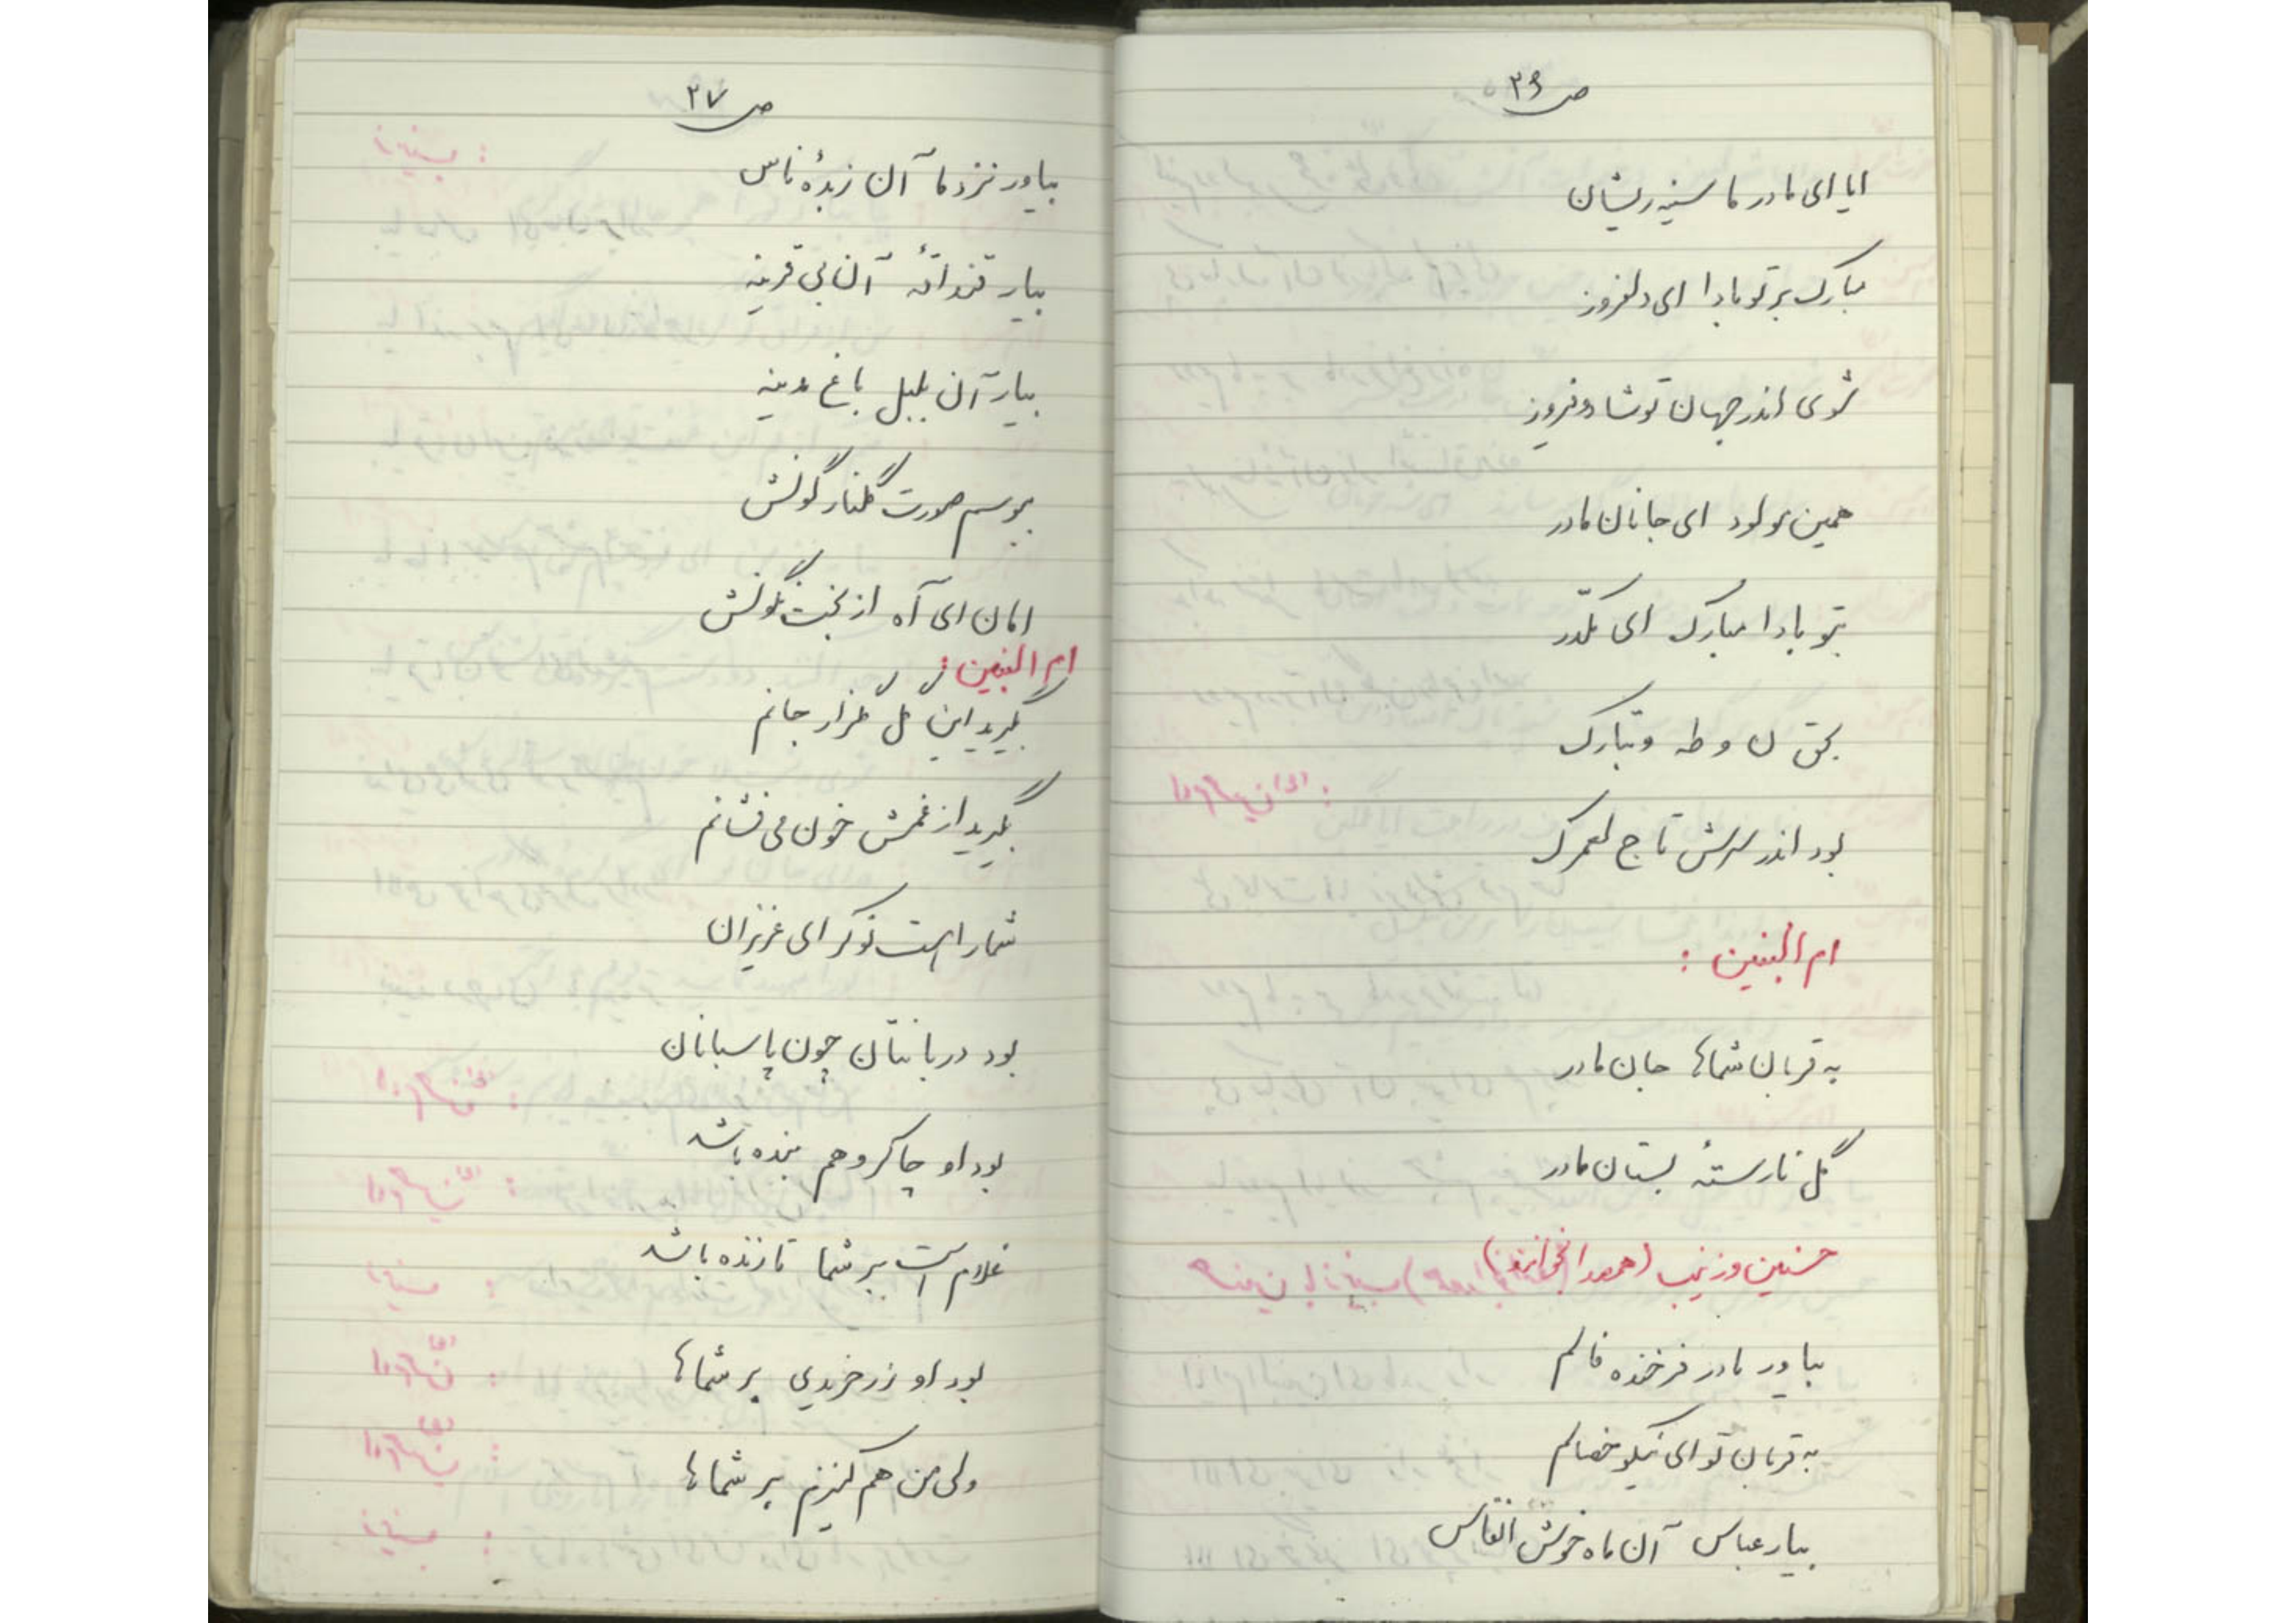 ص ۳۶
ایا ای مادر ما سینه ریشان
مبارک بر تو بادا ای دلفروز
شوی اندر جهان تو شاد و فیروز
همین مولود ای جانان مادر
بتو بادا مبارک ای مکدّر
بحق ن و طه و تبارک
بود اندر سرش تاج لعمرک
ام البنین :
به قربان شماها جان مادر
گل نارستهٔ بستان مادر
حسنین و زینب (همصدا بخوانند)
بیاور مادر فرخنده فالم
به قربان تو ای نیکو خصالم
بیار عباس آن ماه خوش انفاس
ص ۳۷
بیاور نزد ما آن زبدهٔ ناس
بیار قنداقهٔ آن بی قرینه
بیار آن بلبل باغ مدینه
ببوسم صورت گلنار گونش
امان ای آه از بخت نگونش
ام البنین :
بگیرید این گل گلزار جانم
بگیرید از غمش خون می فشانم
شما را هست نوکر ای عزیزان
بود دربانتان چون پاسبانان
بود او چاکر و هم بنده باشد
غلام است بر شما تا زنده باشد
بود او زرخریدی بر شماها
ولی من هم کنیزم بر شماها